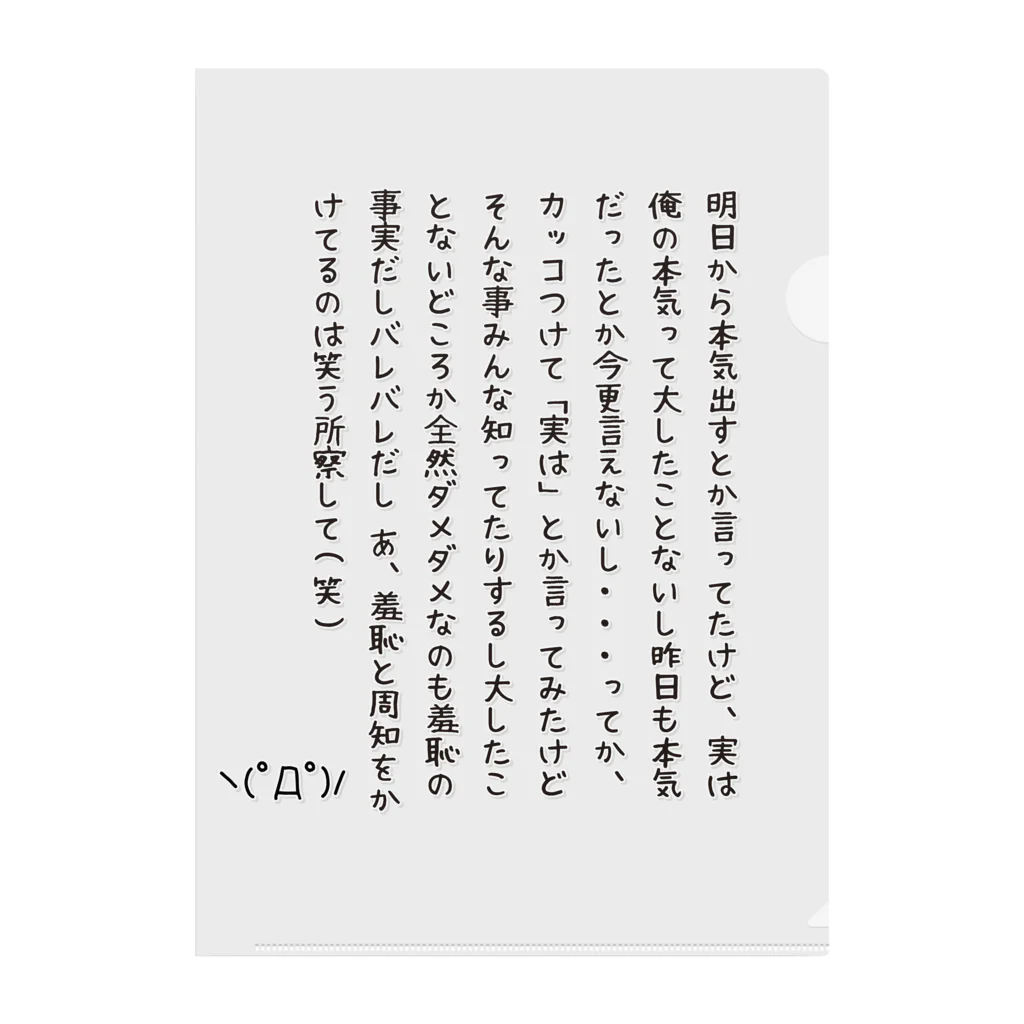 明日から本気出すとか言ってたけど、実は
俺の本気って大したことないし昨日も本気
だったとか今更言えないし・・・ってか、
カッコつけて「実は」とか言ってみたけど
そんな事みんな知ってたりするし大したこ
とないどころか全然ダメダメなのも羞恥の
事実だしバレバレだし あ、羞恥と周知をか
けてるのは笑う所察して(笑)
ヽ(ﾟДﾟ)ﾉ